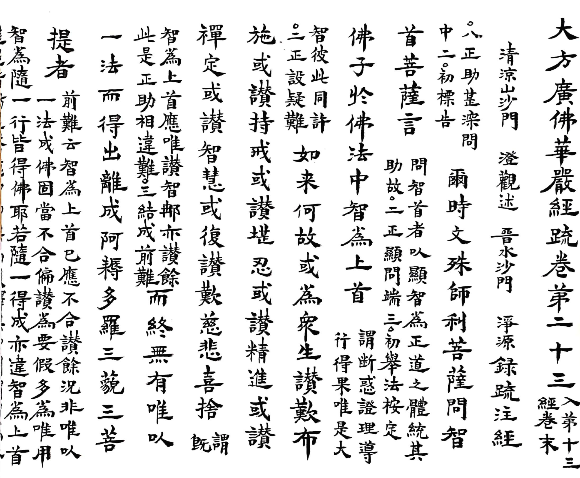 大方廣佛華嚴經疏卷第二十三入第十三經卷末
清涼山沙門　澄觀述　晉水沙門　淨源錄疏注經
○八正助甚深問中二○初標告　爾時文殊師利菩薩問智
首菩薩言問智首者以顯智為正道之體統其助故○二正顯問端三○初舉法桉定
佛子於佛法中智為上首謂斷惑證理導行得果唯是大
智彼此同許○二正設疑難　如来何故或為衆生讃歎布
施或讃持戒或讃堪忍或讃精進或讃
禪定或讃智慧或復讃歎慈悲喜捨謂既
智為上首應唯讃智那亦讃餘此是正助相違難○三結成前難而終無有唯以
一法而得出離成阿耨多羅三藐三菩
提者前難云智為上首已應不合讃餘況非唯以一法成佛固當不合偏讃為要假多為唯用
智為隨一行皆得佛耶若隨一得成亦違智為上首